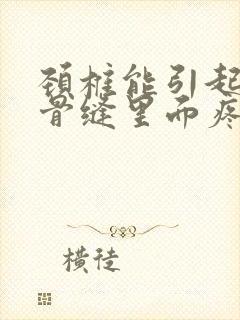 颈椎能引起
骨缝里面疼
横徒